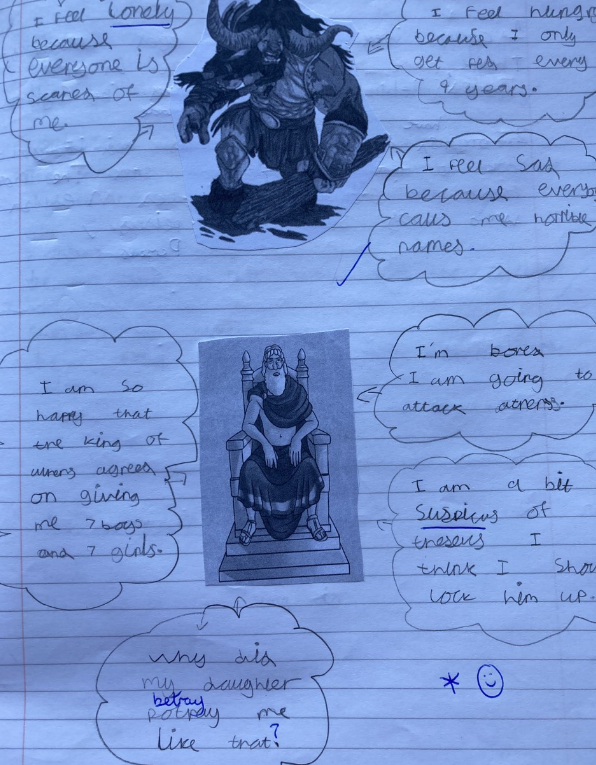 I feel Lonely
because
everyone is
scares of
me.
I feel hungr
because I only
get fes every
9 years.
I feel Sad
because everyb
calls me horrible
names.
I am so
happy that
the king of
athens agrees
on giving
me 7 boys
and 7 girls.
I'm bored
I am going to
attack athens.
I am a bit
suspicus of
theseus I
think I shou
lock him up.
why did
my daughter
betray
potray me
like that?